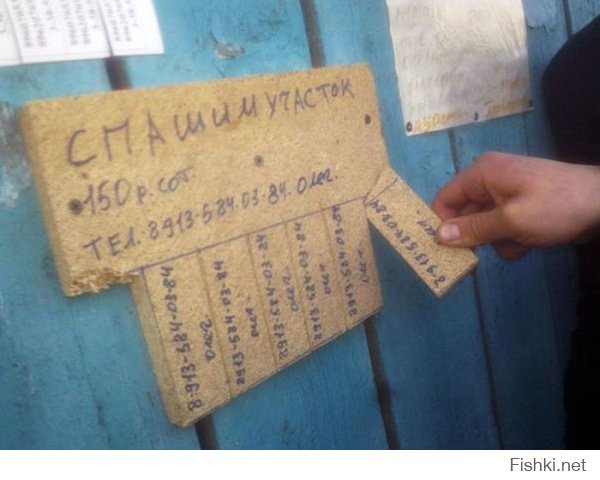 СПАШИМ УЧАСТОК
150 р. сот.
ТЕЛ. 8913-584-03-84. Олег.
8-913-584-03-84
Олег.
8913-584-03-84
Олег.
8913-584-03-84
Олег.
8913-584-03-84
Олег
8913-584-03-84
Олег.
8-913-584-03-84
Олег.
Fishki.net